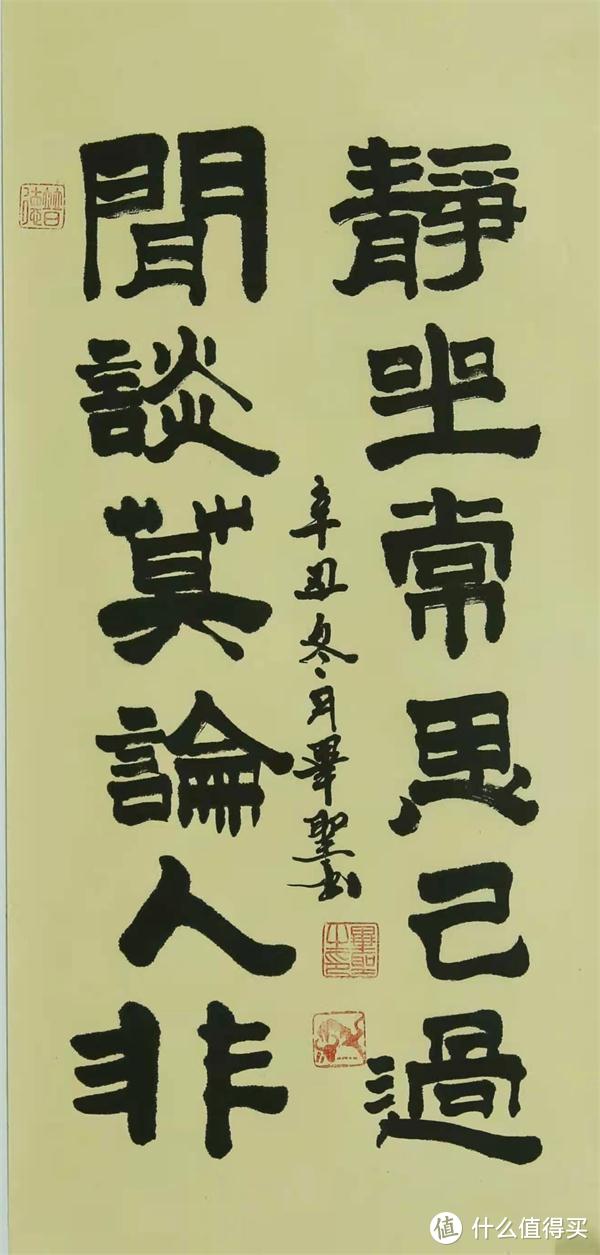 靜坐常思己過
閒談莫論人非
辛丑冬月畢聖書
畢聖之印
值 什么值得买